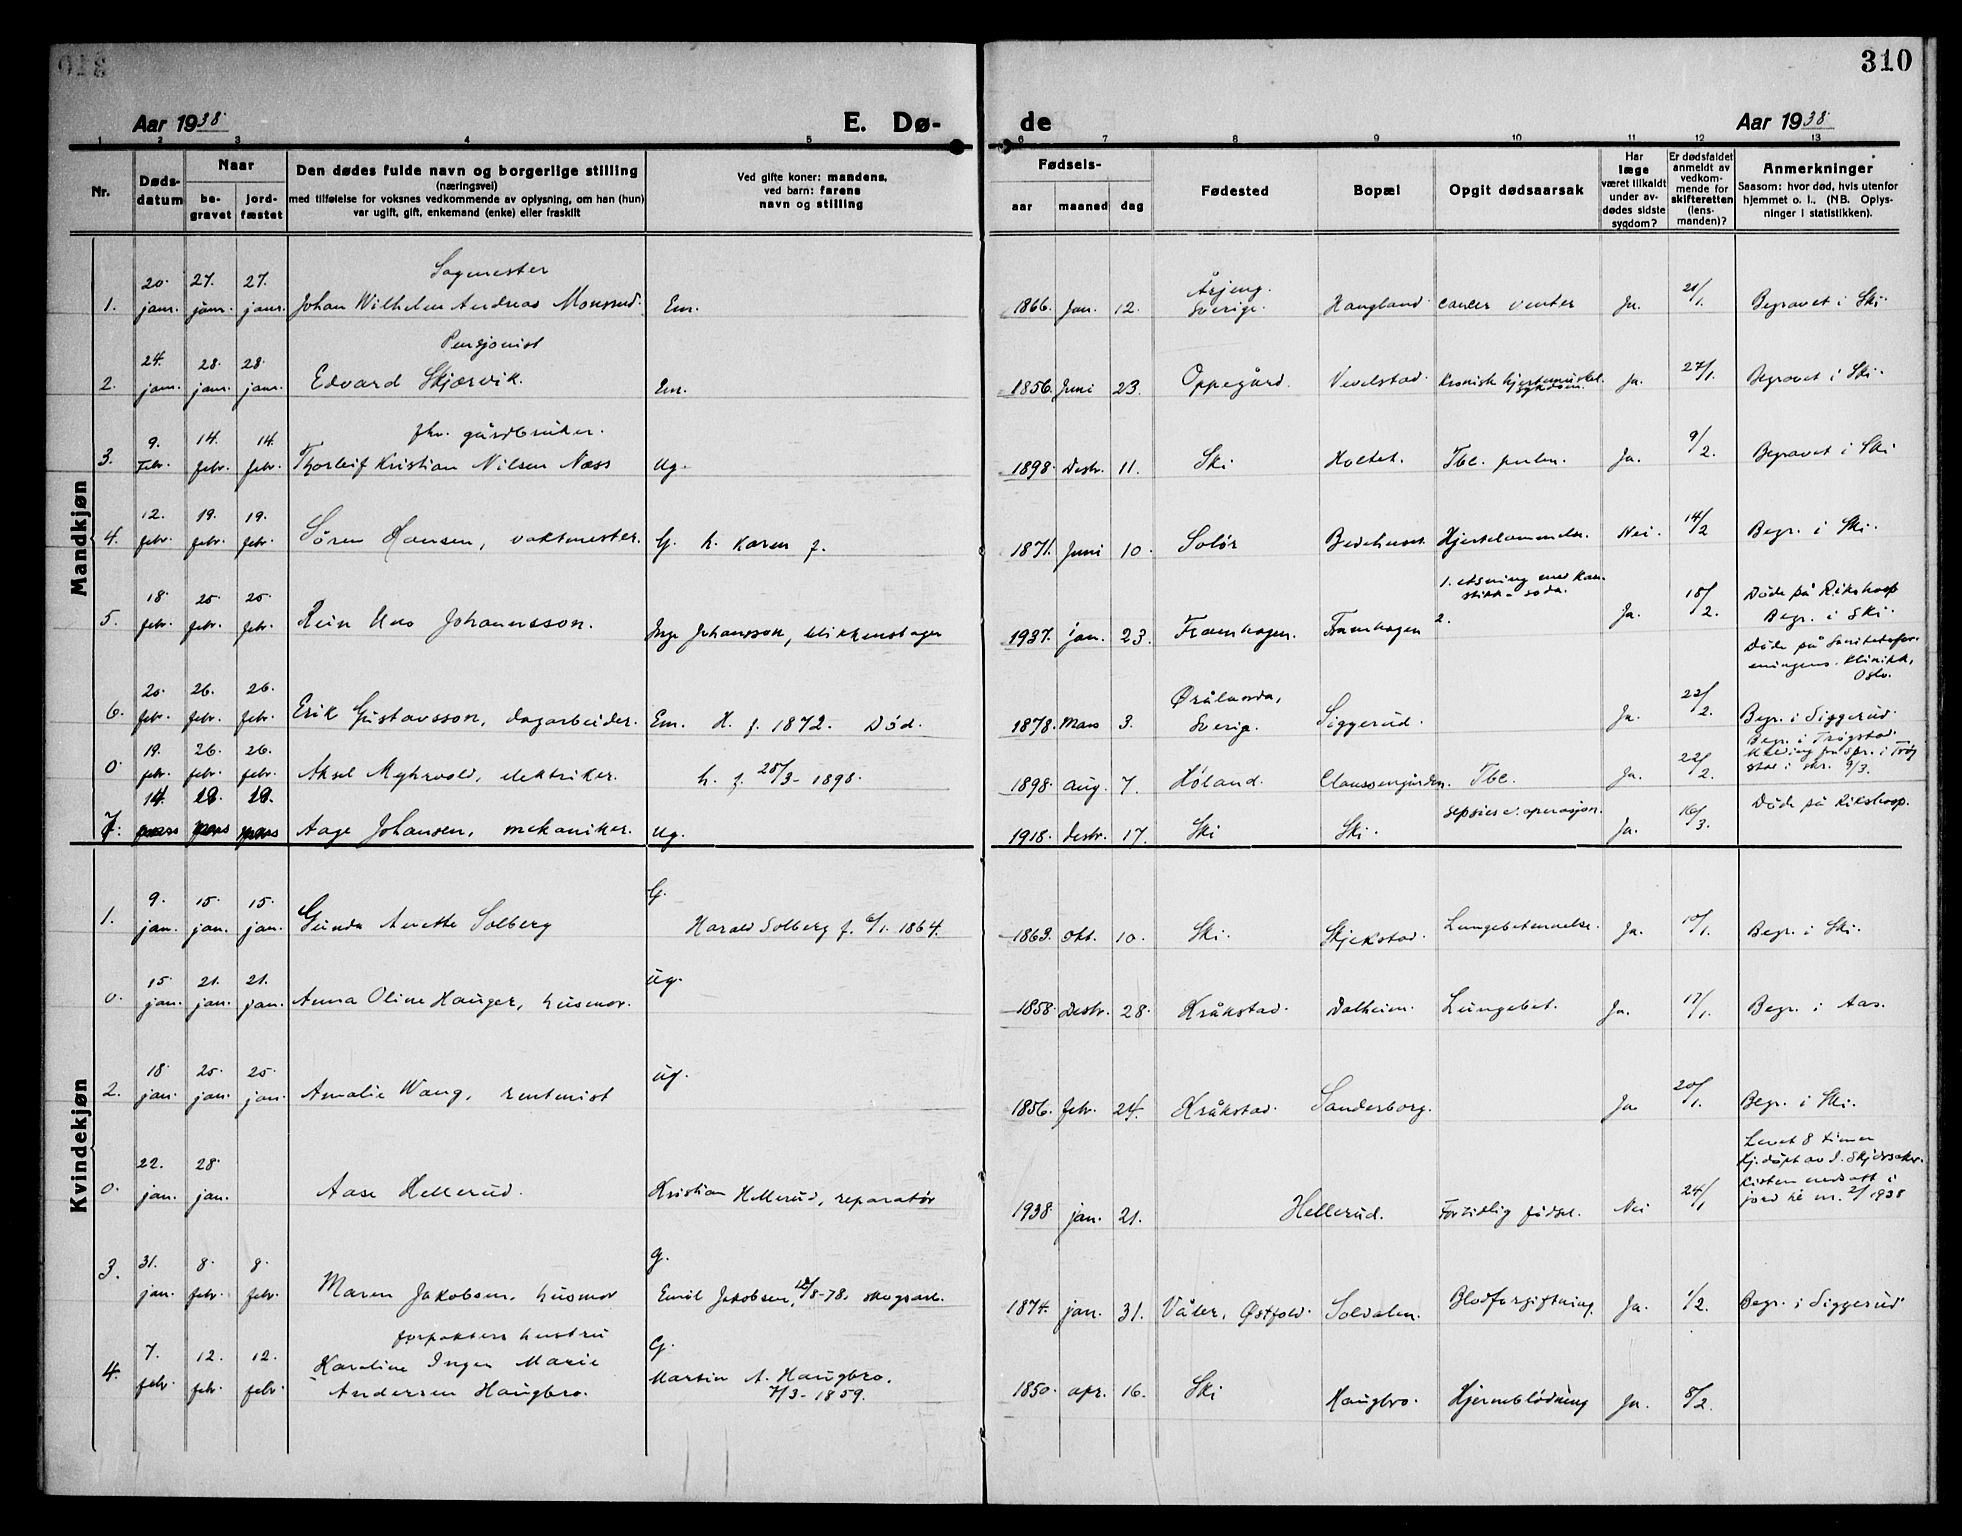 310
Aar 1938.
E. Dø-
de
Aar 1938.
1 2 3 4 5 6 7 8 9 10 11 12 13
Nr.
Døds-
datum
Naar
be-
gravet
jord-
fæstet
Den dødes fulde navn og borgerlige stilling
(næringsvei)
med tilføielse for voksnes vedkommende av oplysning, om han (hun)
var ugift, gift, enkemand (enke) eller fraskilt
Ved gifte koner: mandens,
ved barn: farens
navn og stilling
Fødsels-
aar maaned dag
Fødested
Bopæl
Opgit dødsaarsak
Har
læge
været tilkaldt
under av-
dødes sidste
sygdom?
Er dødsfaldet
anmeldt av
vedkom-
mende for
skifteretten
(lens-
manden)?
Anmerkninger
Saasom: hvor død, hvis utenfor
hjemmet o. l., (NB. Oplys-
ninger i statistikken).
Mandkjøn
Sagmester
1. 20. janr. 27. janr. 27. janr. Johan Wilhelm Andreas Monsrud. Em. 1866. Jan. 12. Årjeng. Sverige. Haugland. cancer venter Ja. 21/1. Begravet i Ski.
Pensjonist
2. 24. janr. 28. janr. 28. janr. Edvard Skjærvik. Em. 1856. Juni 23. Oppegård. Vevelstad. Kronisk hjertemuskel sykdom. Ja. 27/1. Begravet i Ski.
fhv. gårdbruker.
3. 9. Febr. 14. febr. 14. febr. Thorleif Kristian Nilsen Næss Ug. 1898. Desbr. 11. Ski Holtet. Tbc. pulm. Ja. 9/2. Begravet i Ski
4. 12. febr. 19. febr. 19. febr. Sören Hansen, vaktmester. G. h. Karen f. 1871. Juni 10. Solör Bedehuset. Hjertelammelse. Nei. 14/2 Begr. i Ski.
5. 18. febr. 25. febr. 25. febr. Rein Uno Johannsson. Inge Johansson, blikkenslager 1937. jan. 23. Framhagen. Framhagen 1. etsning med kau-
stikk-soda.
2. Ja. 18/2. Døde på Rikshosp
Begr. i Ski.
6. 20. febr. 26. febr. 26. febr. Erik Gustavsson, dagarbeider. Em. H. f. 1872. Död. 1878. Mars 3. Sverige. Siggerud. Ja. 22/2. Döde på Sanitetsfor-
eningens. Klinikk,
Oslo.
Begr. i Siggerud.
0 19. febr. 26. febr. 26. febr. Aksel Myhrvold, elektriker. h. f. 28/3-1898. 1898. aug. 7. Höland. Claussengården. Tbc. Ja. 22/2. Begr. i Trøgstad.
7. 14. mars 19. mars 19. mars Aage Johansen, mekaniker. Ug. 1918. desbr. 17. Ski Ski. sepsis e. operasjon. Ja. 16/3. Döde på Rikshosp.
Kvindekjøn
1. 9. jan. 15. jan. 15. jan. Gunda Anette Solberg G.
Harald Solberg f. 6/1. 1864. 1863. Okt. 10. Ski. Skjekstad. Lungebetennelse. Ja. 10/1. Begr. i Ski.
0. 15. jan. 21. jan. 21. jan. Anna Oline Hauger, husmor. ug. 1858. Desbr. 28. Kråkstad. Dalheim. Lungebet. Ja. 17/1. Begr. i Aas.
2. 18. jan. 25. jan. 25. jan. Amalie Wang, rentenist ug. 1856. febr. 24. Kråkstad. Sanderborg. Ja 20/1. Begr. i Ski.
0. 22. jan. 28. jan. Aase Hellerud. Kristian Hellerud, reparatør 1938. jan. 21. Hellerud. Fortidlig födsel. Nei 24/1 Levet 8 timer
3. 31. jan. 8. febr. 8. febr. Maren Jakobsen, husmor g.
Emil Jakobsen, 12/8-78, skogsarb. 1874. jan. 31. Våler, Østfold. Solvalen. Blodforgiftning. Ja. 1/2. Begr. i Siggerud
forpakters hustru
4. 7. febr. 12. febr. 12. febr. Karoline Inger Marie
Andersen Haugbro. G.
Martin A. Haugbro.
7/3-1859. 1850. apr. 16. Ski Haugbro. Hjerneblödning Ja. 8/2.